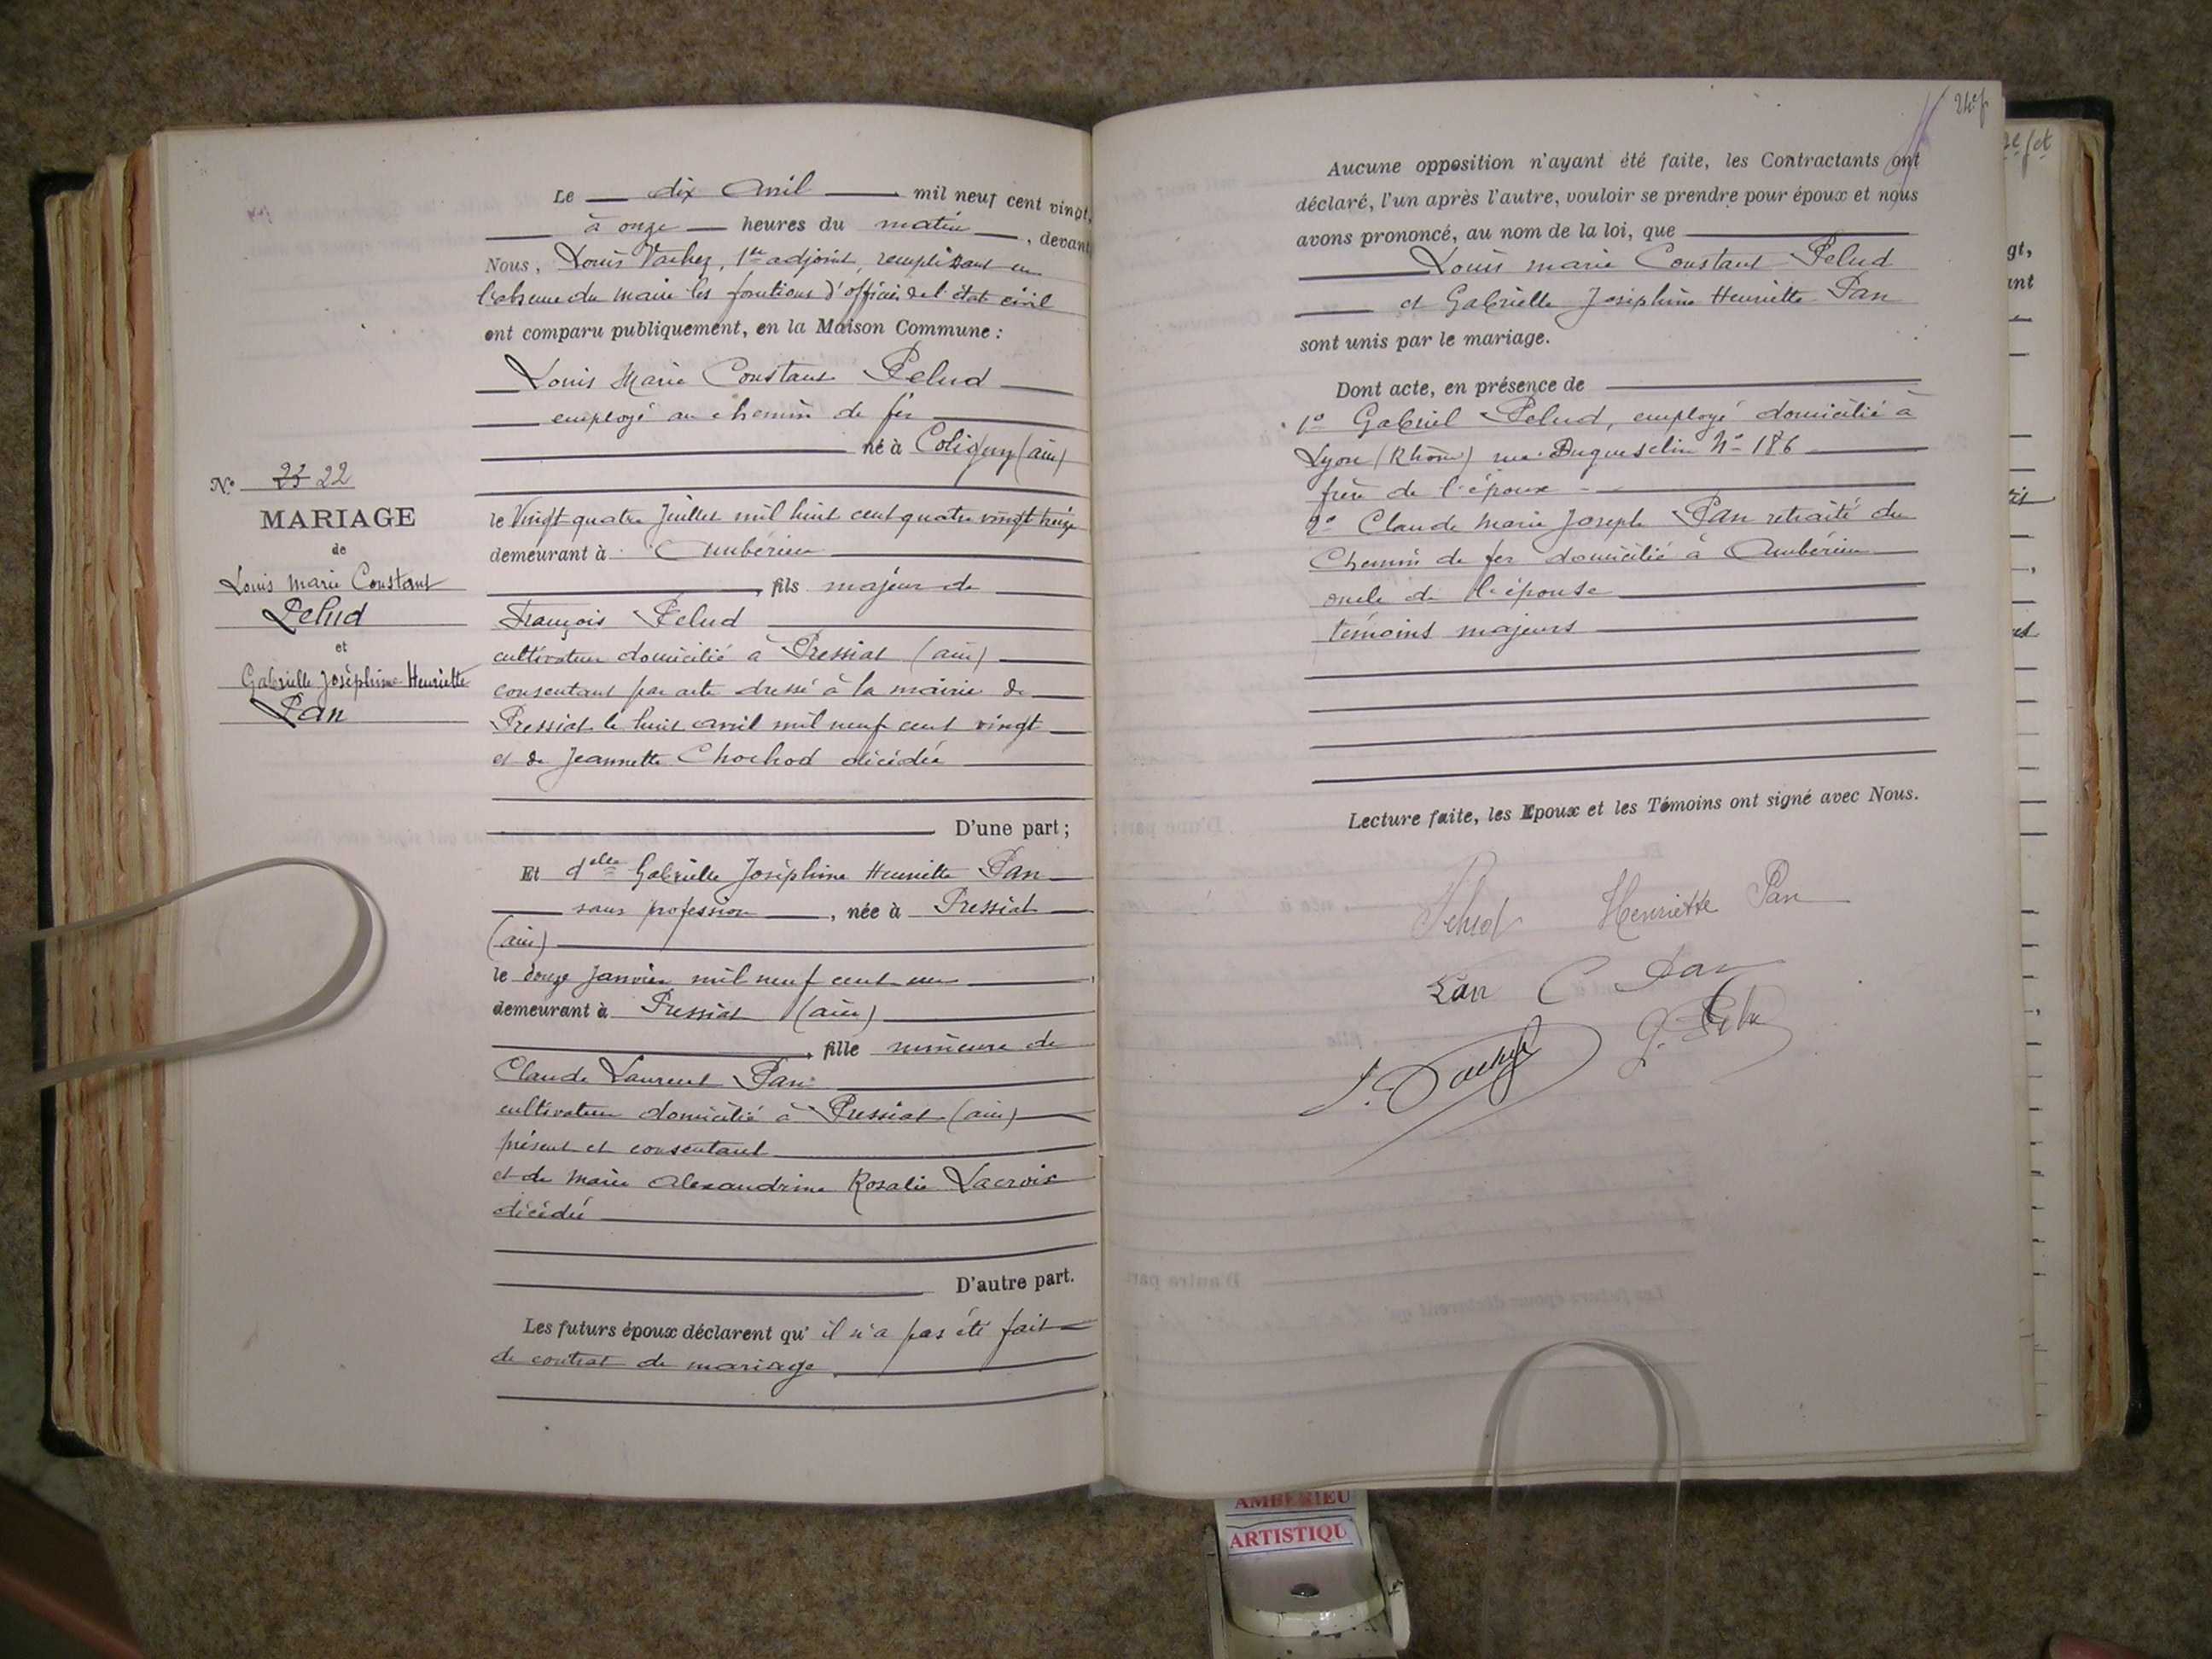 N° 23 22
MARIAGE
de
Louis Marie Constant
Pelud
et
Gabrielle Joséphine Henriette
Pan
Le dix Avril mil neuf cent vingt,
à onze heures du matin, devant
Nous, Louis Vachez, 1er adjoint, remplissant en
l'absence du Maire les fonctions d'officier de l'état civil
ont comparu publiquement, en la Maison Commune :
Louis Marie Constant Pelud
employé au chemin de fer
né à Coligny (Ain)
le Vingt quatre Juillet mil huit cent quatre vingt treize
demeurant à Ambérieu
, fils majeur de
François Pelud
cultivateur domicilié à Pressiat (Ain)
consentant par acte dressé à la mairie de
Pressiat le huit avril mil neuf cent vingt
et de Jeannette Chochod décédée
D'une part ;
Et delle Gabrielle Joséphine Henriette Pan
sans profession, née à Pressiat
(Ain)
le douze Janvier mil neuf cent un
demeurant à Pressiat (Ain)
, fille mineure de
Claude Laurent Pan
cultivateur domicilié à Pressiat (Ain)
présent et consentant
et de Marie Alexandrine Rosalie Lacroix
décédée
D'autre part.
Les futurs époux déclarent qu'il n'a pas été fait
de contrat de mariage
Aucune opposition n'ayant été faite, les Contractants ont
déclaré, l'un après l'autre, vouloir se prendre pour époux et nous
avons prononcé, au nom de la loi, que
Louis Marie Constant Pelud
et Gabrielle Joséphine Henriette Pan
sont unis par le mariage.
Dont acte, en présence de
1° Gabriel Pelud, employé domicilié à
Lyon (Rhône) rue Duguesclin N° 186
frère de l'époux
2° Claude Marie Joseph Pan retraité du
Chemin de fer domicilié à Ambérieu
oncle de l'épouse
témoins majeurs
Lecture faite, les Epoux et les Témoins ont signé avec Nous.
Pelud Henriette Pan
Pan C Pan
L. Vachez G. Pelud
AMBERIEU
ARTISTIQU